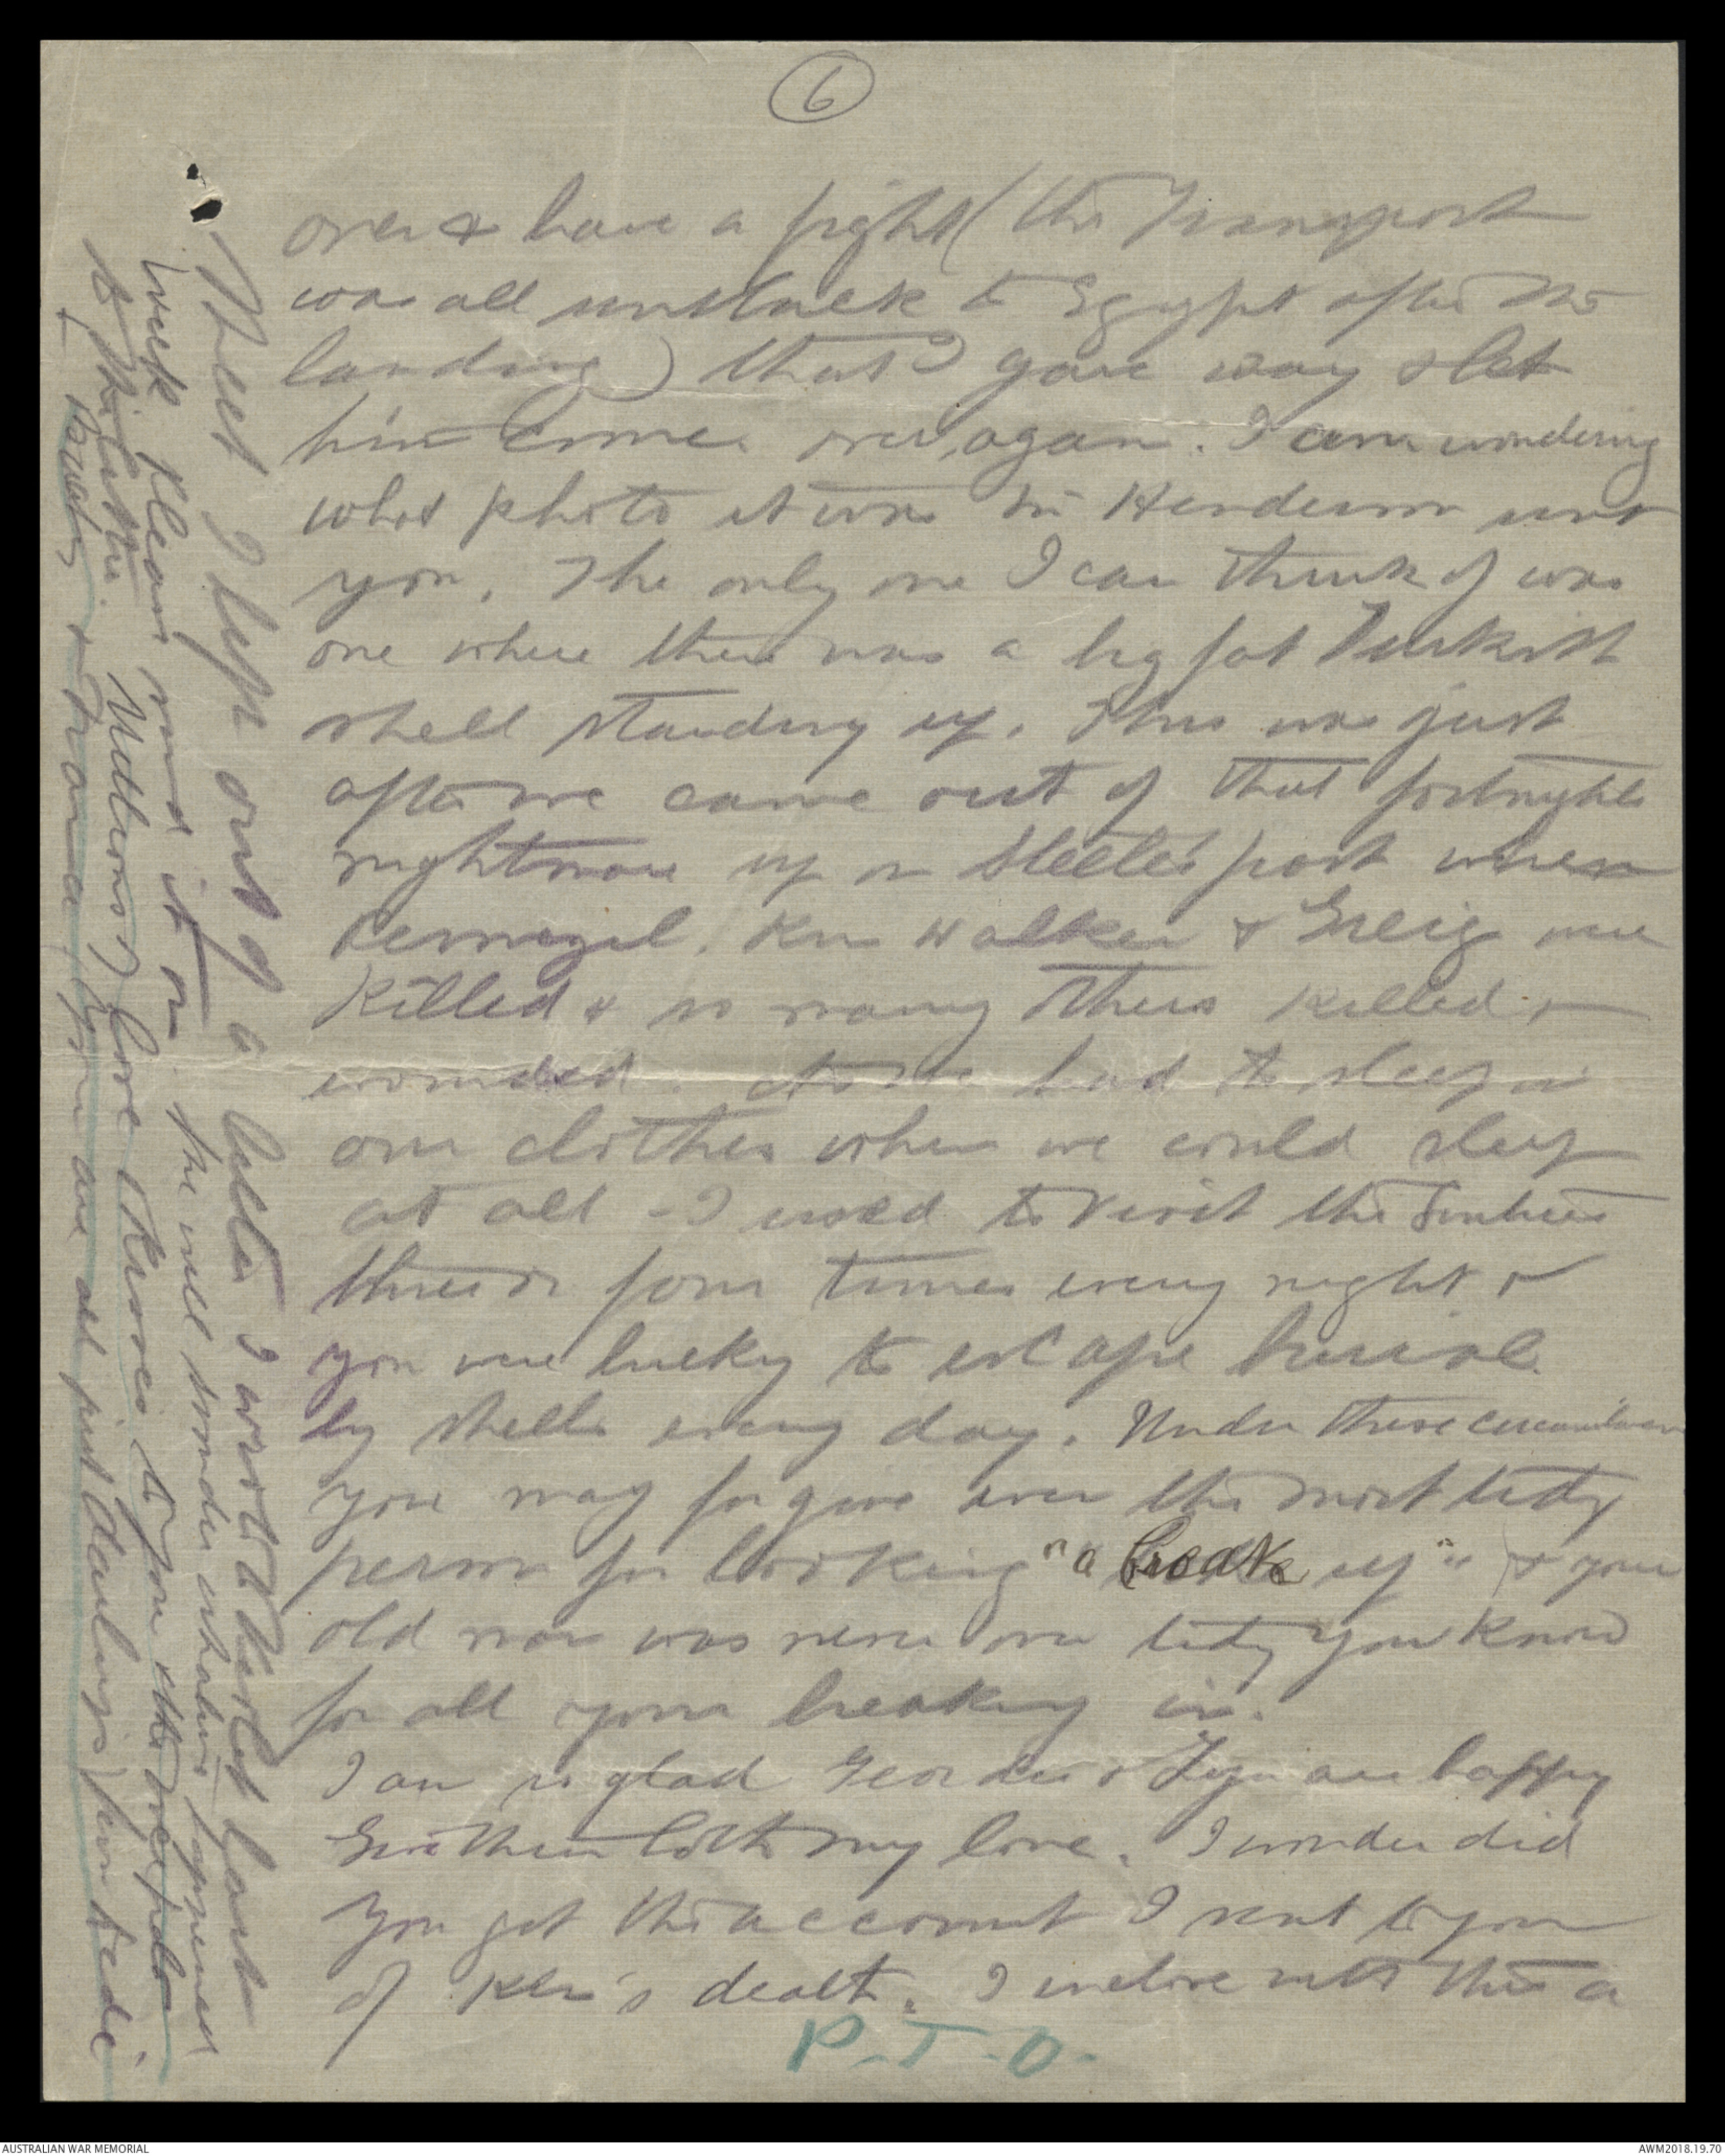 6
over & have a fight (the Transport
was all sent back to Egypt after the
landing) that I gave way & let
him come over again. I am wondering
what photo it was Mr Henderson sent
you. The only one I can think of was
one where there was a big fat Turkish
shell standing up. This was just
after we came out of that fortnights
nightmare up on Steeles post when
Hennegal, Ken Walker & Greig were
killed & so many others killed &
wounded. had to sleep in
our clothes when we could sleep
at all - I used to visit the Sentries
three or four times every night &
you were lucky to escape burial
by shells every day. Under these circumstances
you may forgive even the most tidy
person for looking "a break up" & your
old man was never over tidy you know
for all your breaking in.
I am so glad & are happy
Give them both my love. I wonder did
you get the account I sent to you
of Ken's death. I enclose with this a
P.T.O.
Sheet I left out of a letter I wrote
week. Please send it on. She will wonder whatever happened
to the letter. love & kisses to you
& you are all just darlings